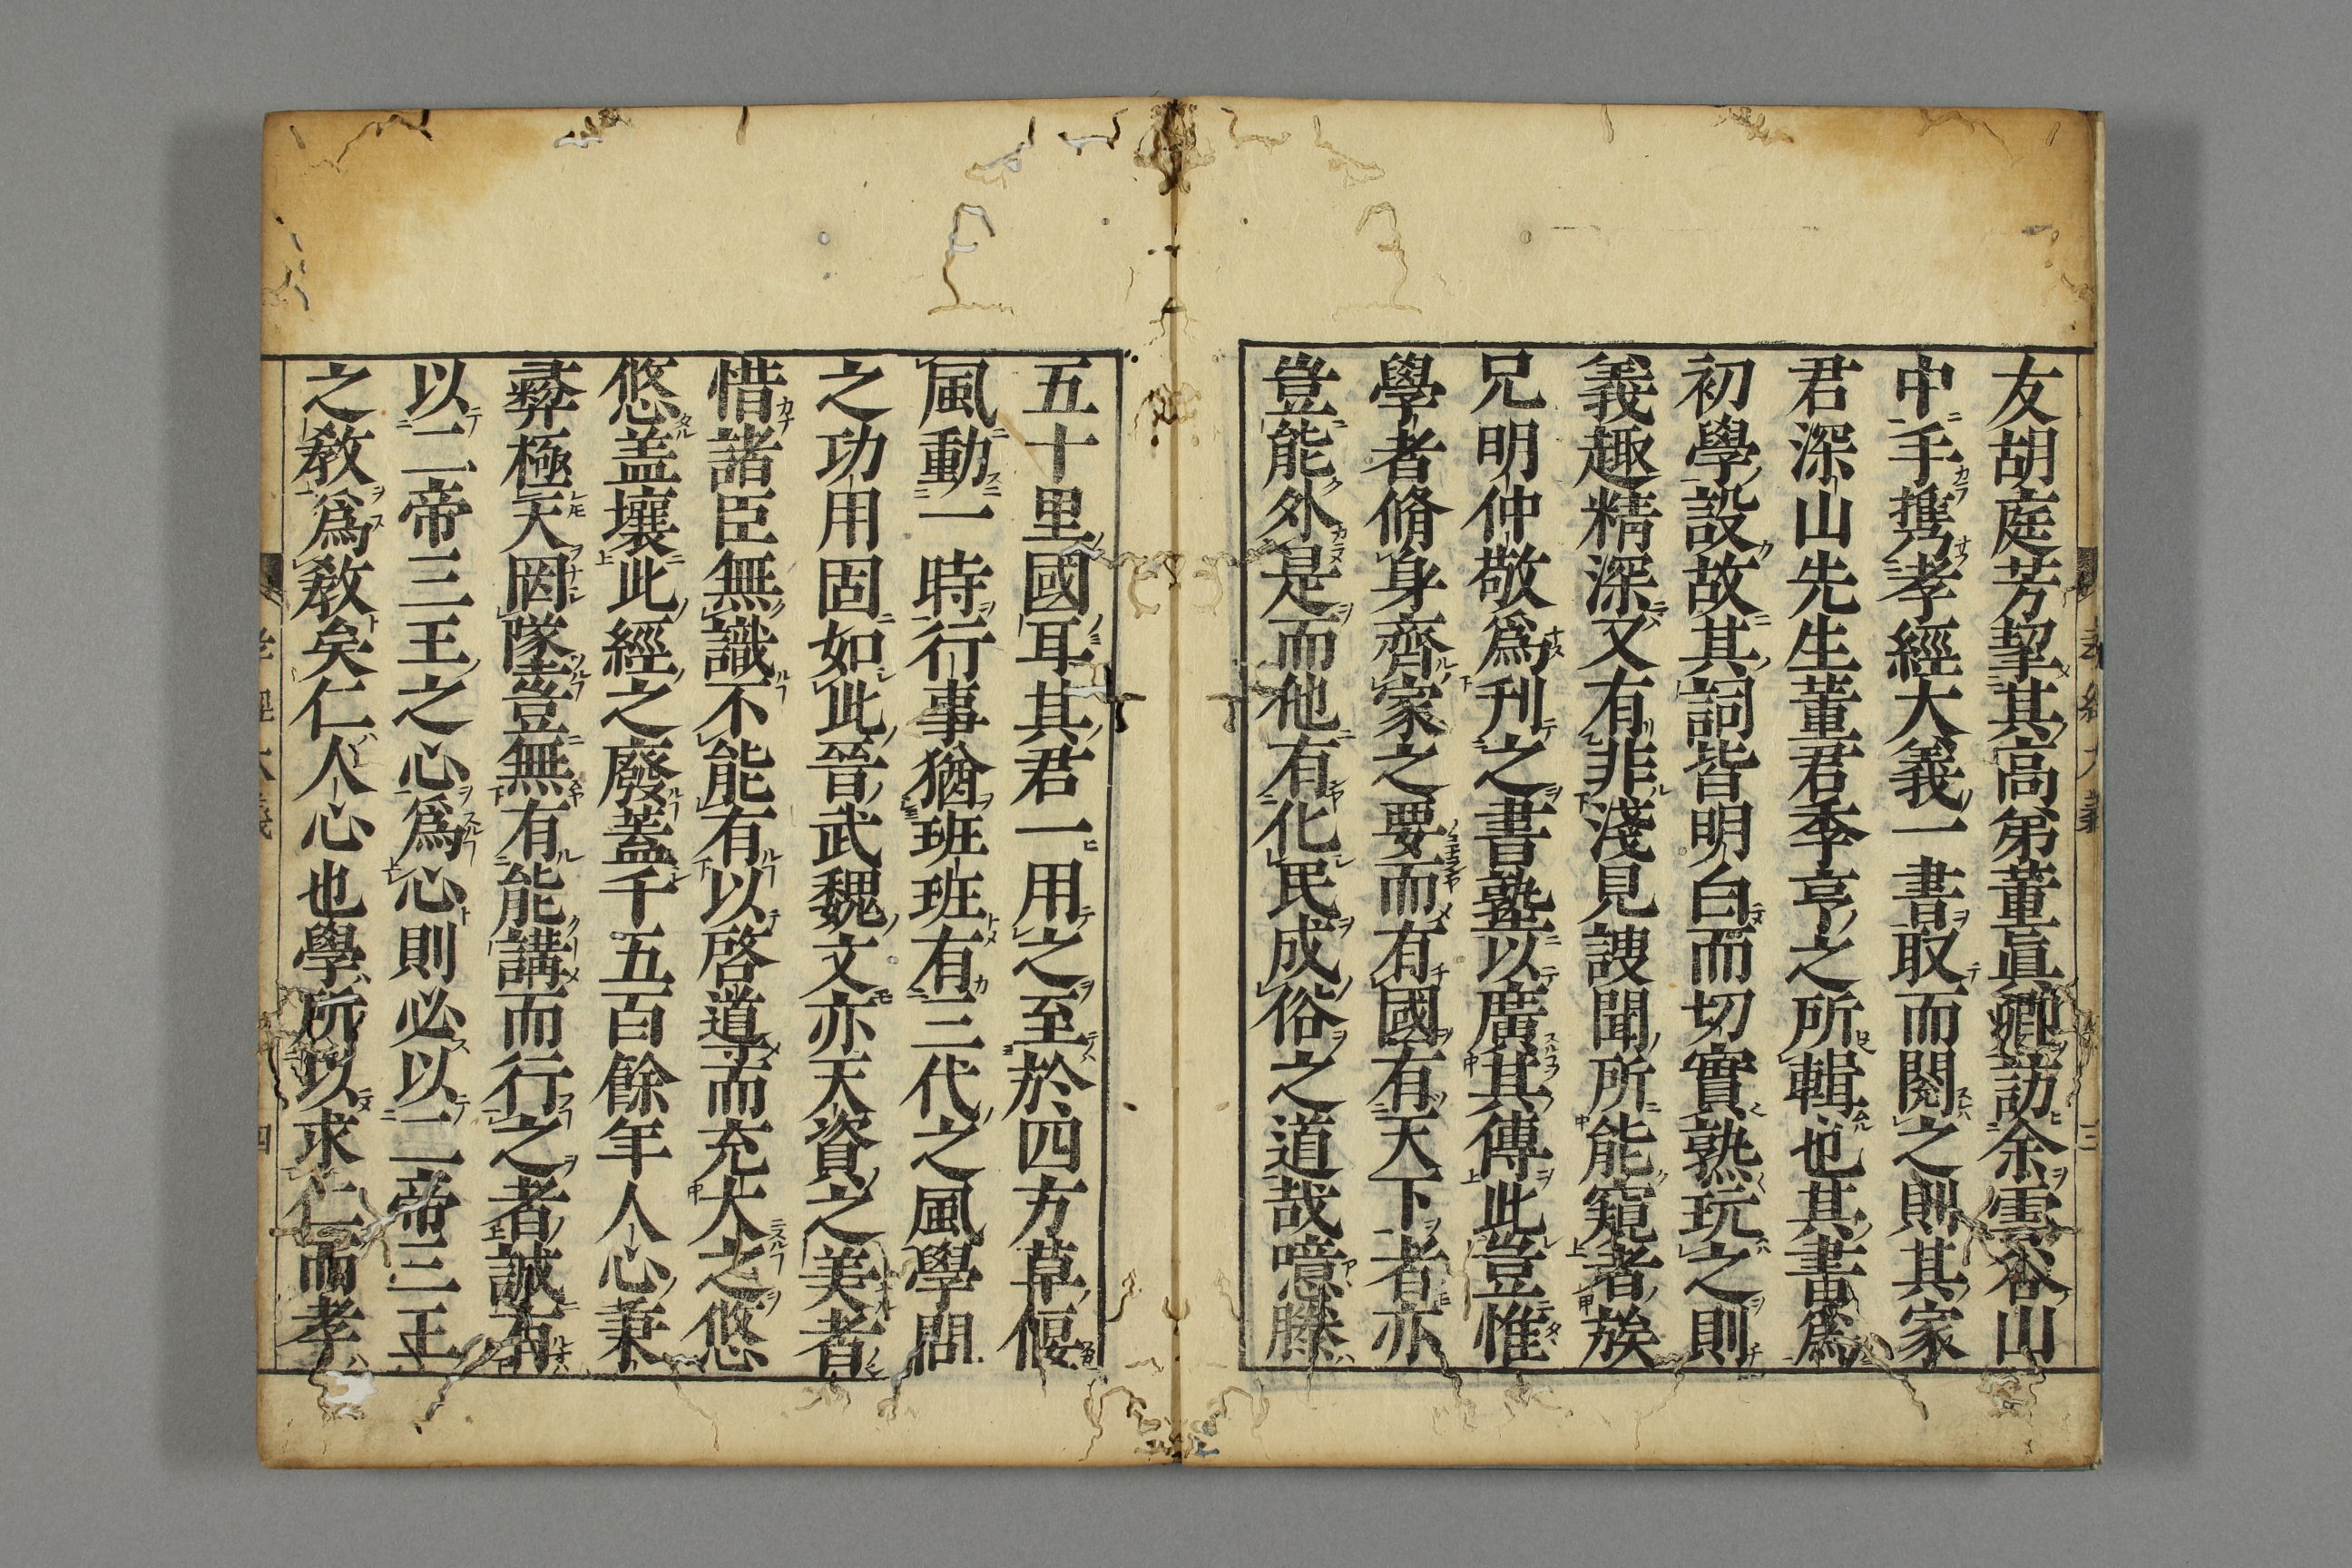 友胡庭芳挈其高弟董眞卿訪余雲谷山
中手携孝經大義一書取而閱之則其家
君深山先生董君季亨之所輯也其書爲
初學設故其詞皆明白而切實熟玩之則
義趣精深又有非淺見謏聞所能窺者族
兄明仲敬爲刊之書塾以廣其傳此豈惟
學者脩身齊家之要而有國有天下者亦
豈能外是而他有化民成俗之道哉噫滕
五十里國耳其君一用之至於四方草偃
風動一時行事猶班班有三代之風學問
之功用固如此晉武魏文亦天資之美者
惜諸臣無識不能有以啓道而充大之悠
悠盖壤此經之廢蓋千五百餘年人心秉
彞極天罔墜豈無有能講而行之者誠有
以二帝三王之心爲心則必以二帝三王
之敎爲敎矣仁人心也學所以求仁而孝